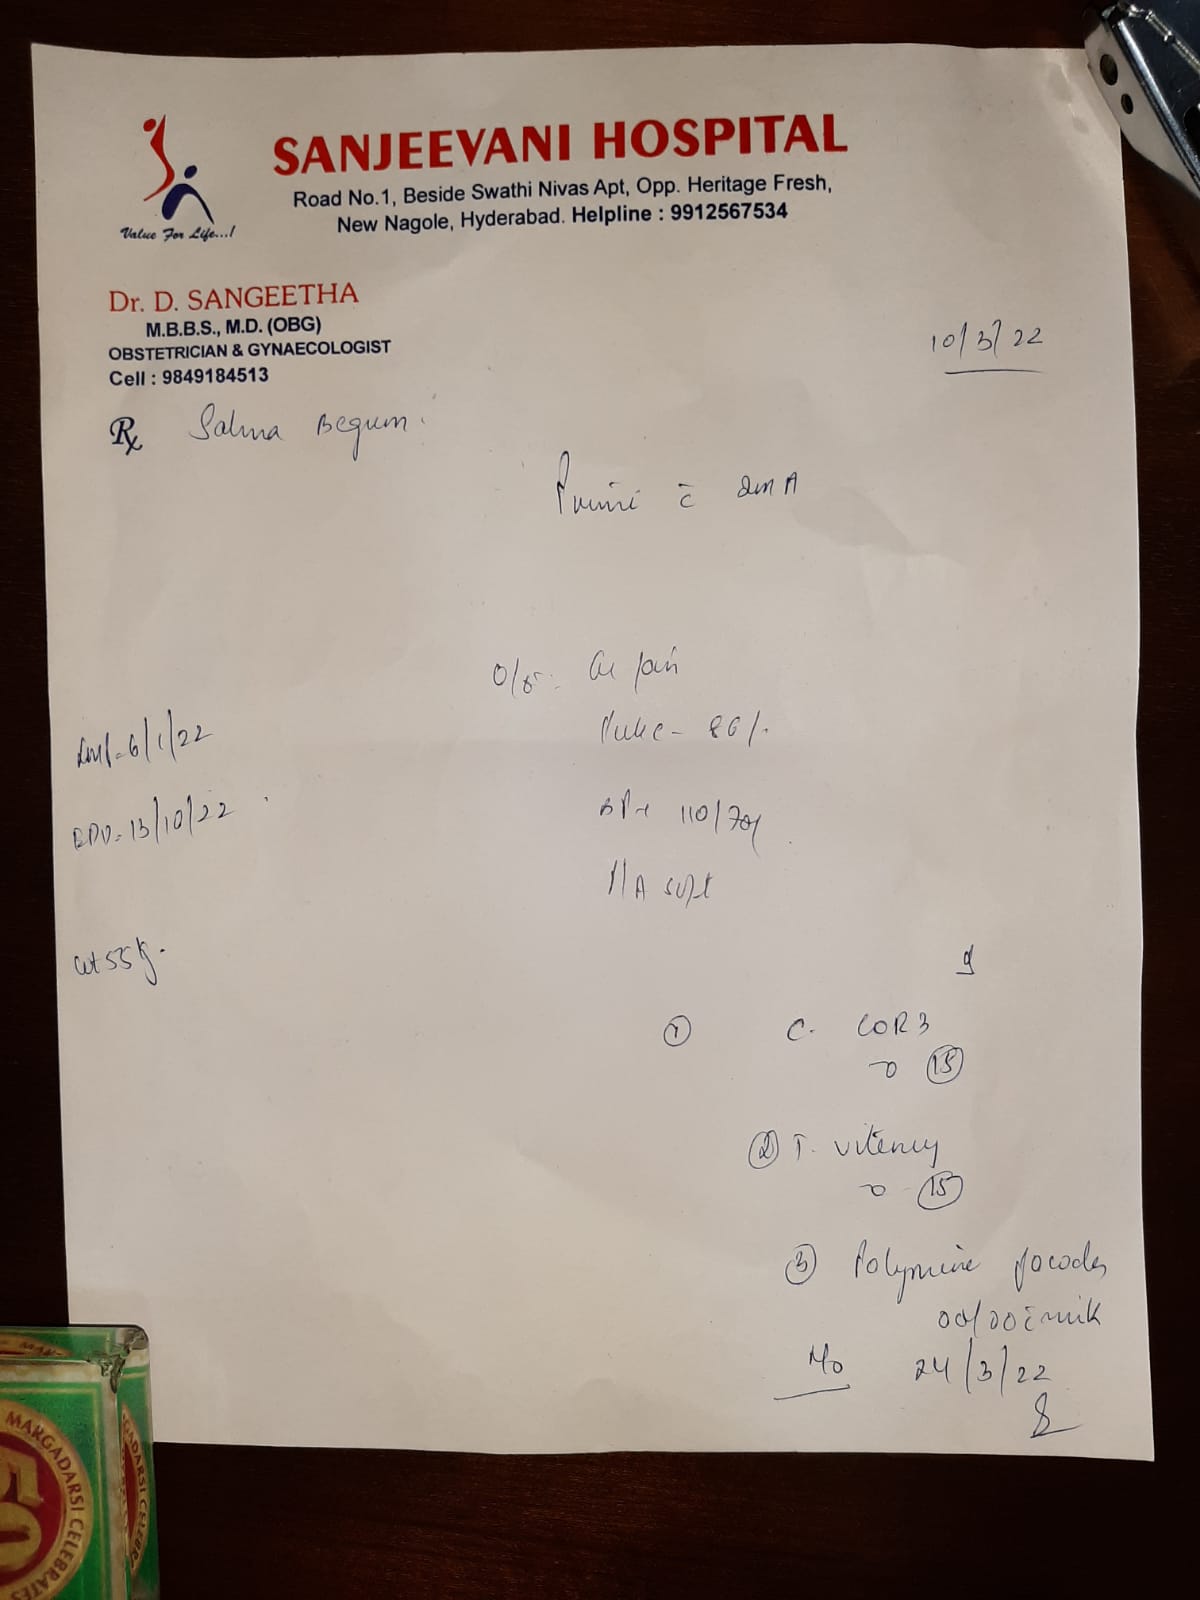 SANJEEVANI HOSPITAL
Road No.1, Beside Swathi Nivas Apt, Opp. Heritage Fresh,
New Nagole, Hyderabad. Helpline : 9912567534
Value For Life...!
Dr. D. SANGEETHA
M.B.B.S., M.D. (OBG)
OBSTETRICIAN & GYNAECOLOGIST
Cell : 9849184513
10/3/22
Rx Salma Begum.
Primi c̄ 2m A
O/E:
Pulse - 86/.
LMP - 6/1/22
BP - 110/70
EDD - 13/10/22
P/A soft
wt 55 kg.
① C. COR3
⑮
② T. 
⑮
③
milk
24/3/22
MARGADARSI CELEBRATES